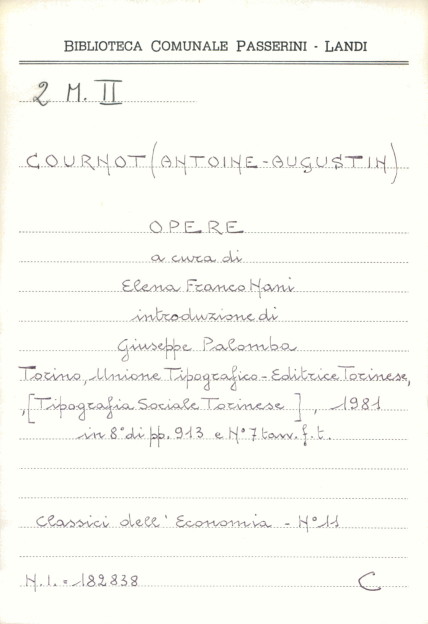 BIBLIOTECA COMUNALE PASSERINI - LANDI
2 M. II
COURNOT (ANTOINE-AUGUSTIN)
OPERE
a cura di
Elena Franco Nani
introduzione di
Giuseppe Palomba
Torino, Unione Tipografico-Editrice Torinese,
,[Tipografia Sociale Torinese], 1981
in 8° di pp. 913 e N° 7 tavv. f. t.
Classici dell' Economia - N° 11
N.I. = 182838 C